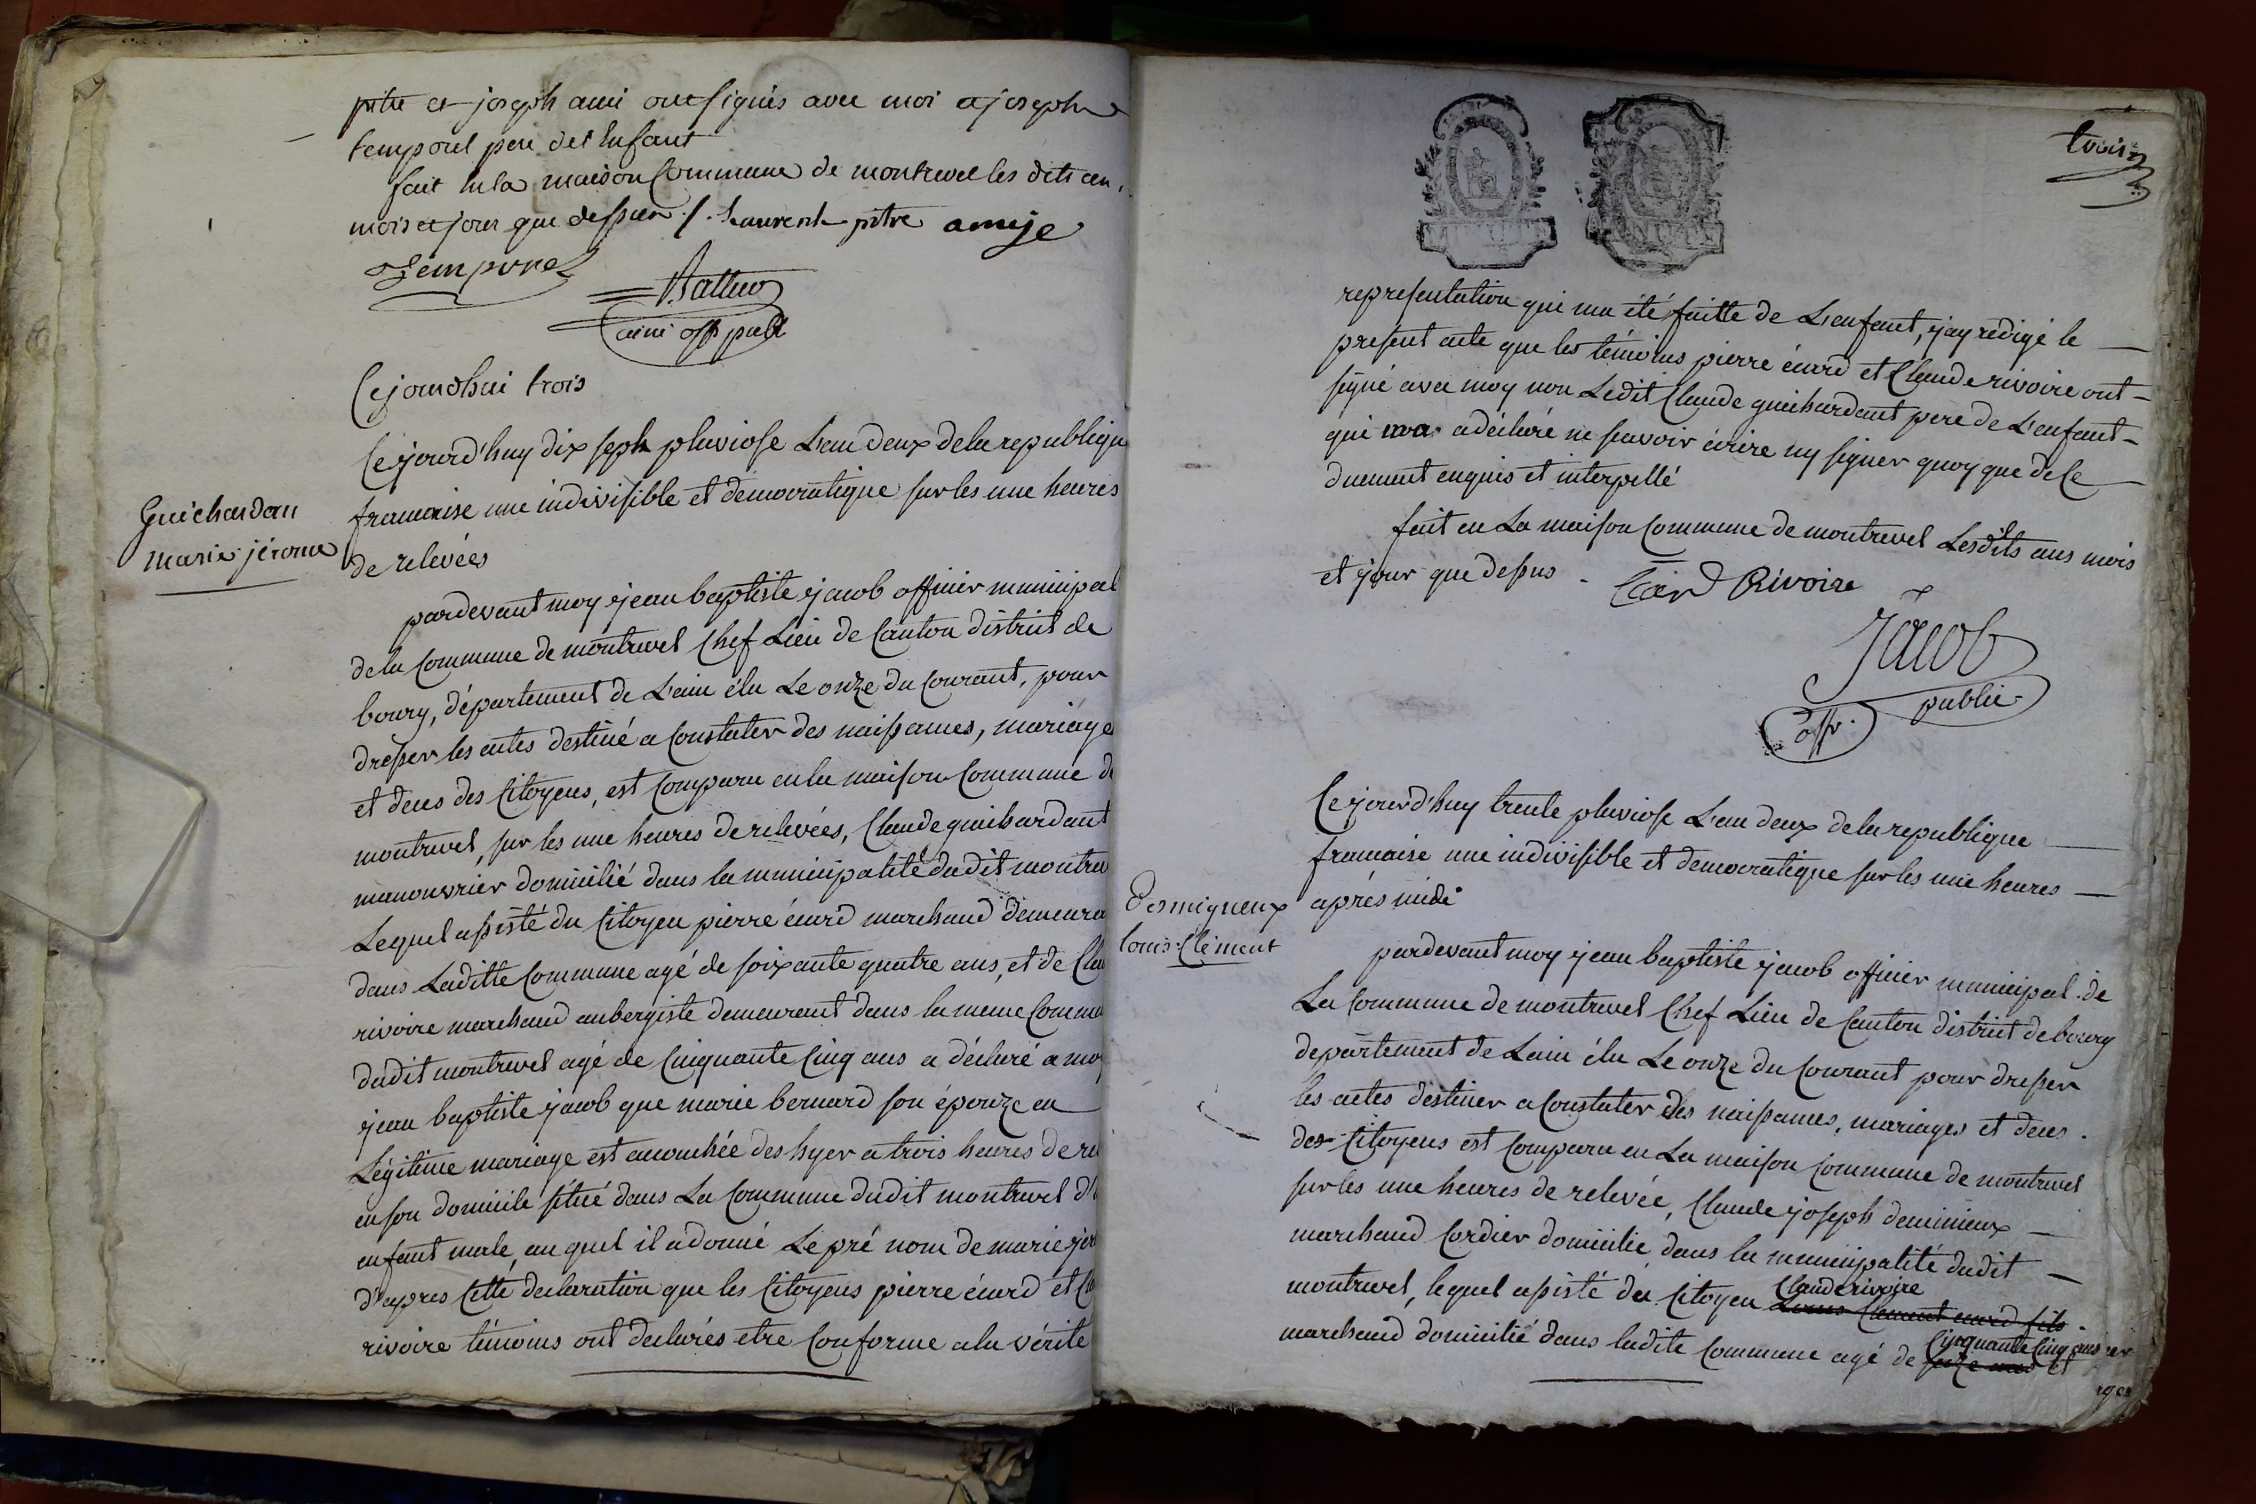 pitre et joseph ami ont signés avec moi et joseph
temporel pere de l'Enfant
fait en la maison Commune de montrevel les dits an,
mois et jour que dessus ./. Laurent pitre amije
Temporel
ainé off publ
Cejourdhui trois
Guichardan
marie jérome
Cejourd'huy dix seph pluviose L'an deux de la republique
francaise une indivisible et democratique sur les une heures
de relevées
pardevant moy jean baptiste jacob officier municipal
de la Commune de montrevel Chef Lieu de Canton district de
bourg, département de L'ain élu Le onze du Courant, pour
dresser les actes destiné a Constater des naissances, mariage
et deces des Citoyens, est Comparu en la maison Commune d
montrevel, sur les une heures de relevées, Claude guichardant
manouvrier domicilié dans la municipalité dudit montrev
Lequel assisté du Citoyen pierre écard marchand demeura
dans Laditte Commune agé de soixante quatre ans, et de Clau
rivoire marchand aubergiste demeurant dans la meme Commu
dudit montrevel agé de Cinquante Cinq ans a déclaré a moy
jean baptiste jacob que marie bernard son épouze en
Légitime mariage est accouchée des hyer a trois heures de re
en son domicile situé dans La Commune dudit montrevel d'
enfant male, au quel il a donné Le pré nom de marie jer
d'apres Cette declaration que les Citoyens pierre écard et Cl
rivoire témoins ont declarés etre Conforme a la vérité
trois
representation qui ma été faitte de L'enfant, jay redigé le
present acte que les témoins pierre écard et Claude rivoire ont
signé avec moy non Ledit Claude guichardant pere de L'enfant
qui a déclaré ne scavoir écrire ny signer quoy que de Ce
duement enquis et interpellé
fait en La maison Commune de montrevel Lesdits ans mois
et jour que dessus
Ecard Rivoire
Jacob
off. public
Cejourd'huy trente pluviose L'an deux de la republique
francaise une indivisible et democratique sur les une heures
après midi
Desmigneux
louis Clément
pardevant moy jean baptiste jacob officier municipal de
La Commune de montrevel Chef Lieu de Canton district de bourg
departement de Lain élu Le onze du Courant pour dresser
les actes destiner a Constater des naissances, mariages et deces
des Citoyens est Comparu en La maison Commune de montrevel
sur les une heures de relevée, Claude joseph deminieux
marchand Cordier domicilié dans la municipalité dudit
montrevel, lequel assisté du Citoyen Claude rivoire Louis Clement ecard fils
marchand domicilié dans ladite Commune agé de Cinquante Cinq ans seize ans et